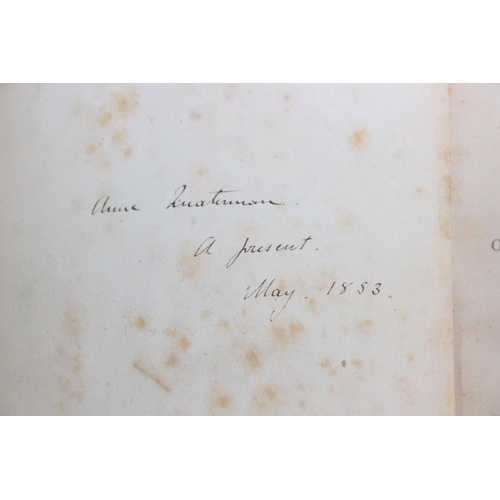 Anne Quaterman.
A present.
May. 1853.